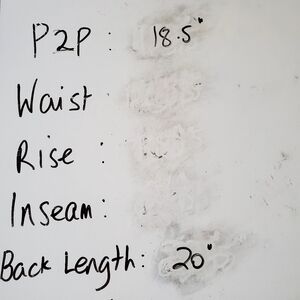 P2P : 18.5"
Waist
Rise :
Inseam :
Back Length : 20"